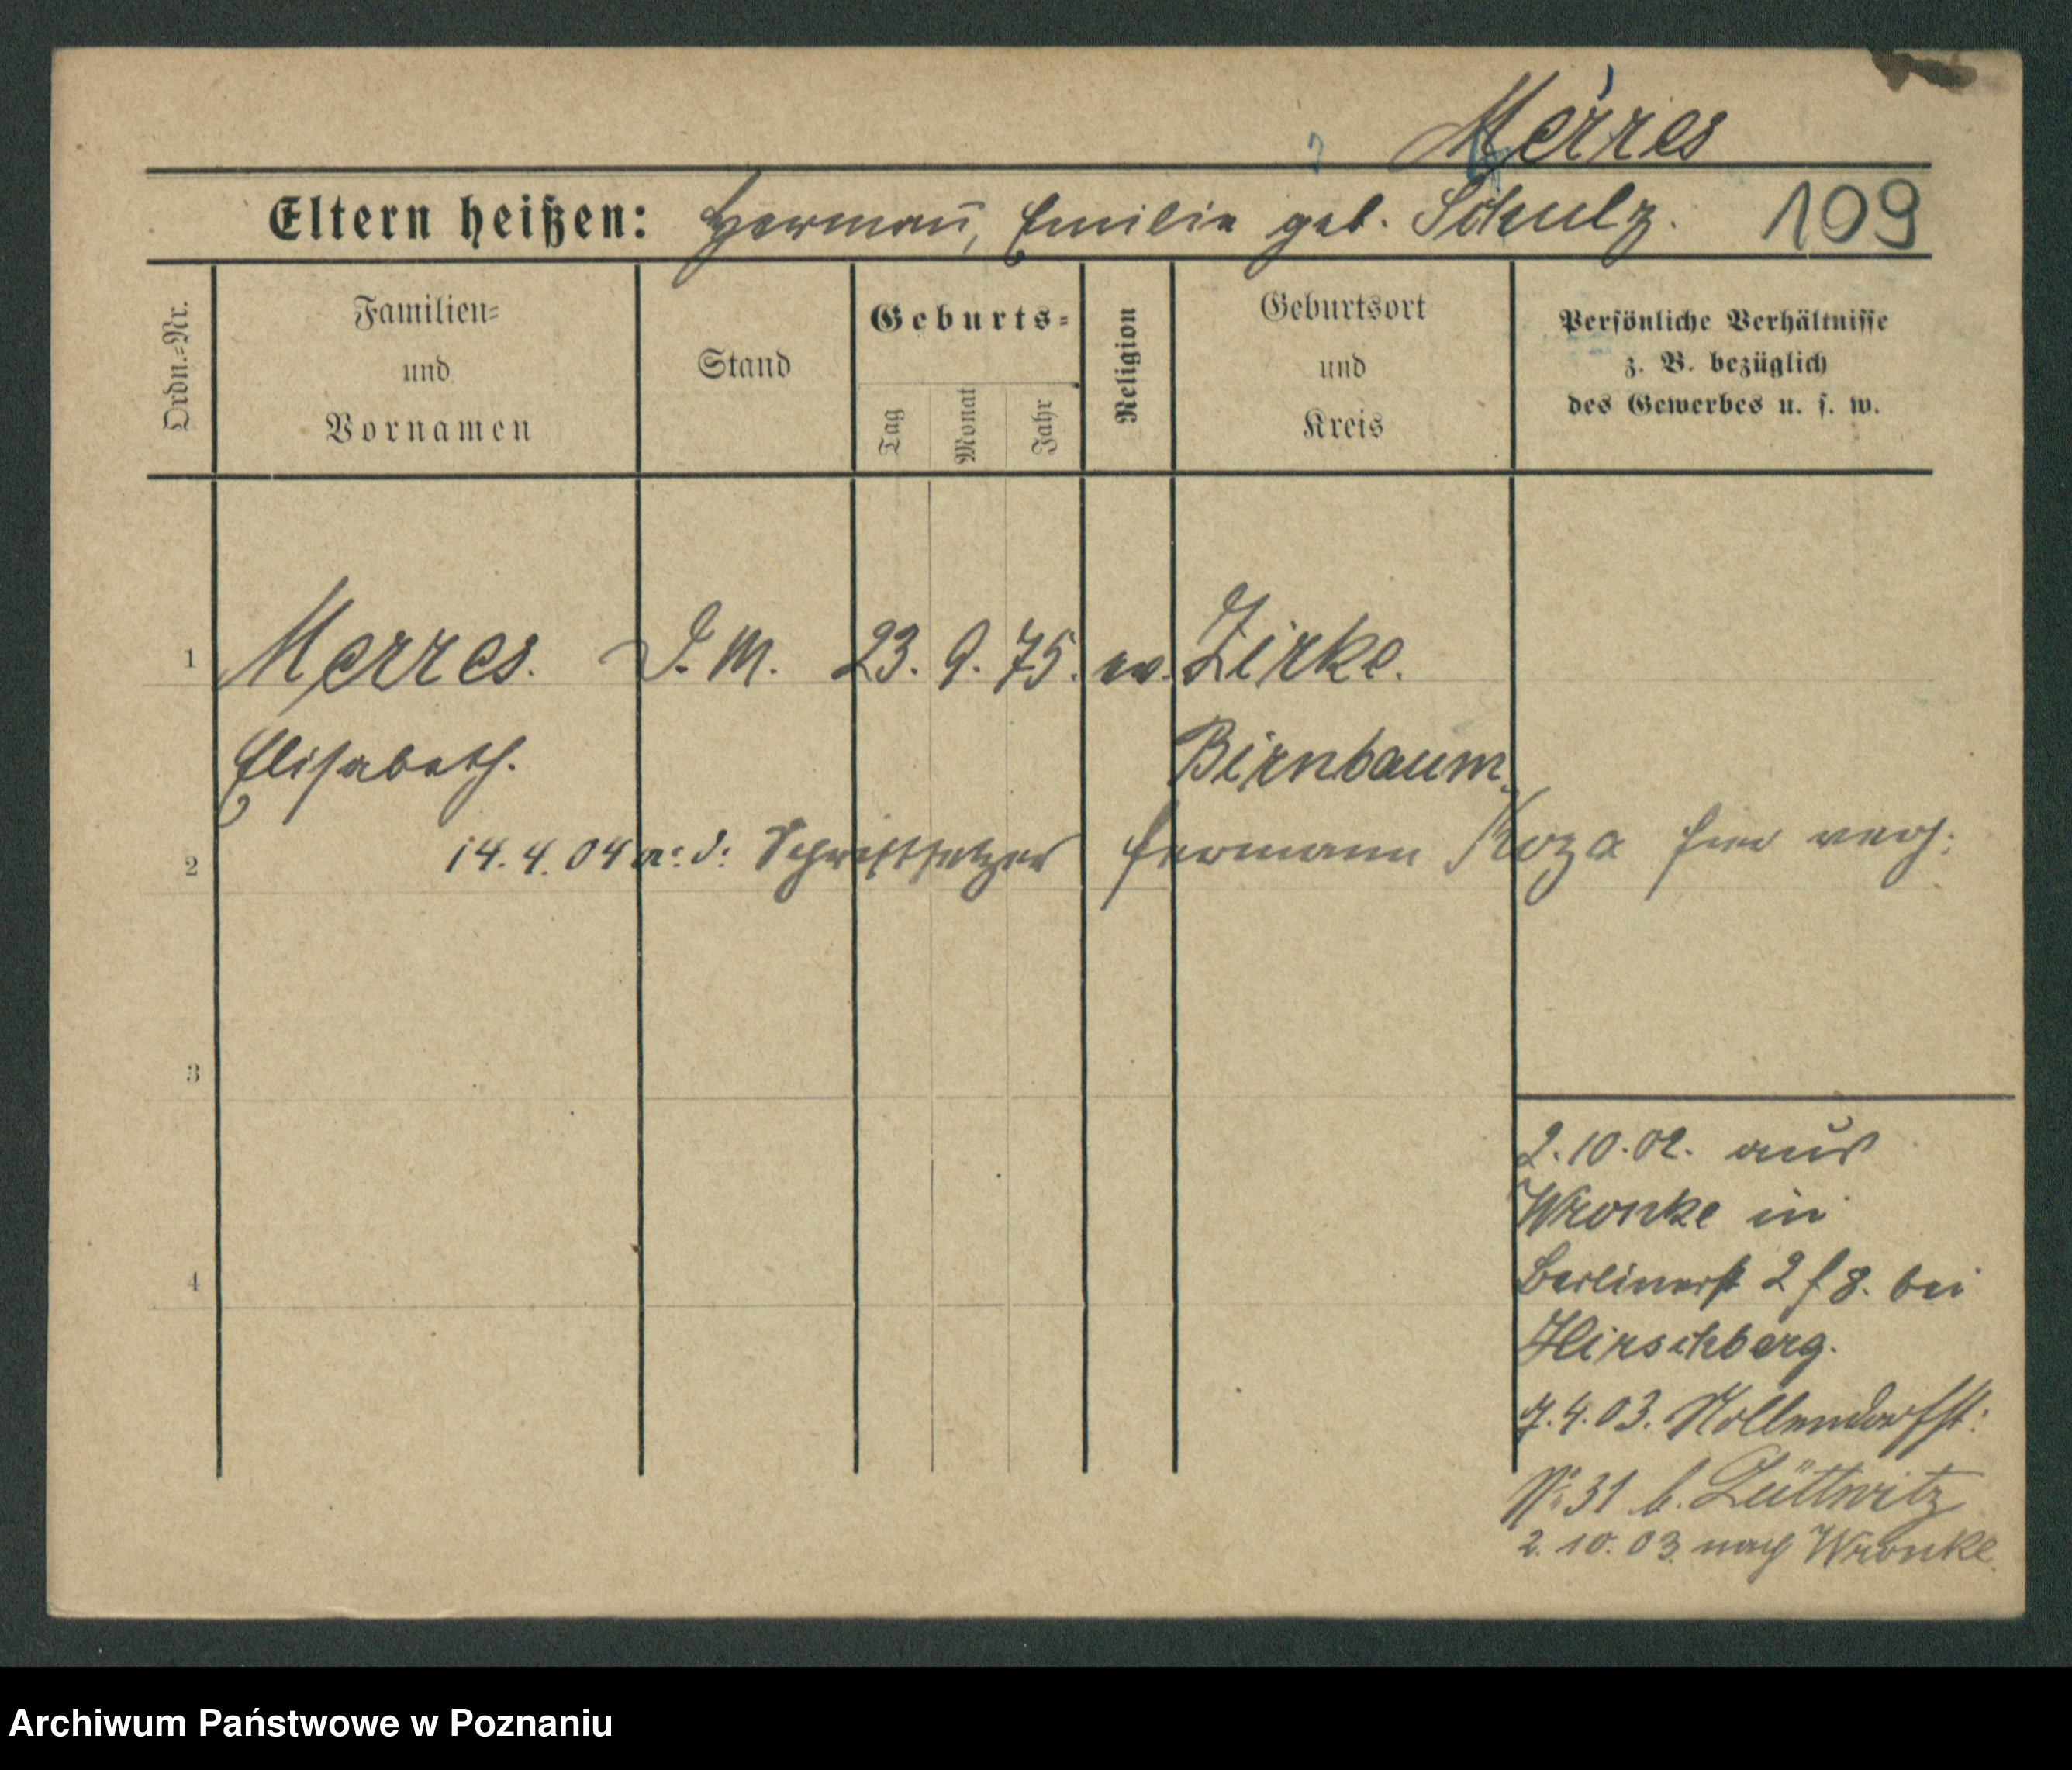 Merres
Eltern heißen: Hermañ, Emilie geb. Schulz. 109
Ordn.-Nr.
Familien-
und
Vornamen
Stand
Geburts-
Tag
Monat
Jahr
Religion
Geburtsort
und
Kreis
Persönliche Verhältnisse
z. B. bezüglich
des Gewerbes u. s. w.
1 Merres. D. M. 23. 9. 75. ev. Zirke.
Elisabeth. Birnbaum.
2 14. 4. 04 m: d: Schriftsetzer Hermann Koza hier verh:
3
2. 10. 02. aus
Wronke in
4 Berlinerst 2 f 8. bei
Hirschberg.
7. 4. 03. Nollendorfst:
No 31 b. Lüttwitz
2. 10. 03. nach Wronke
Archiwum Państwowe w Poznaniu